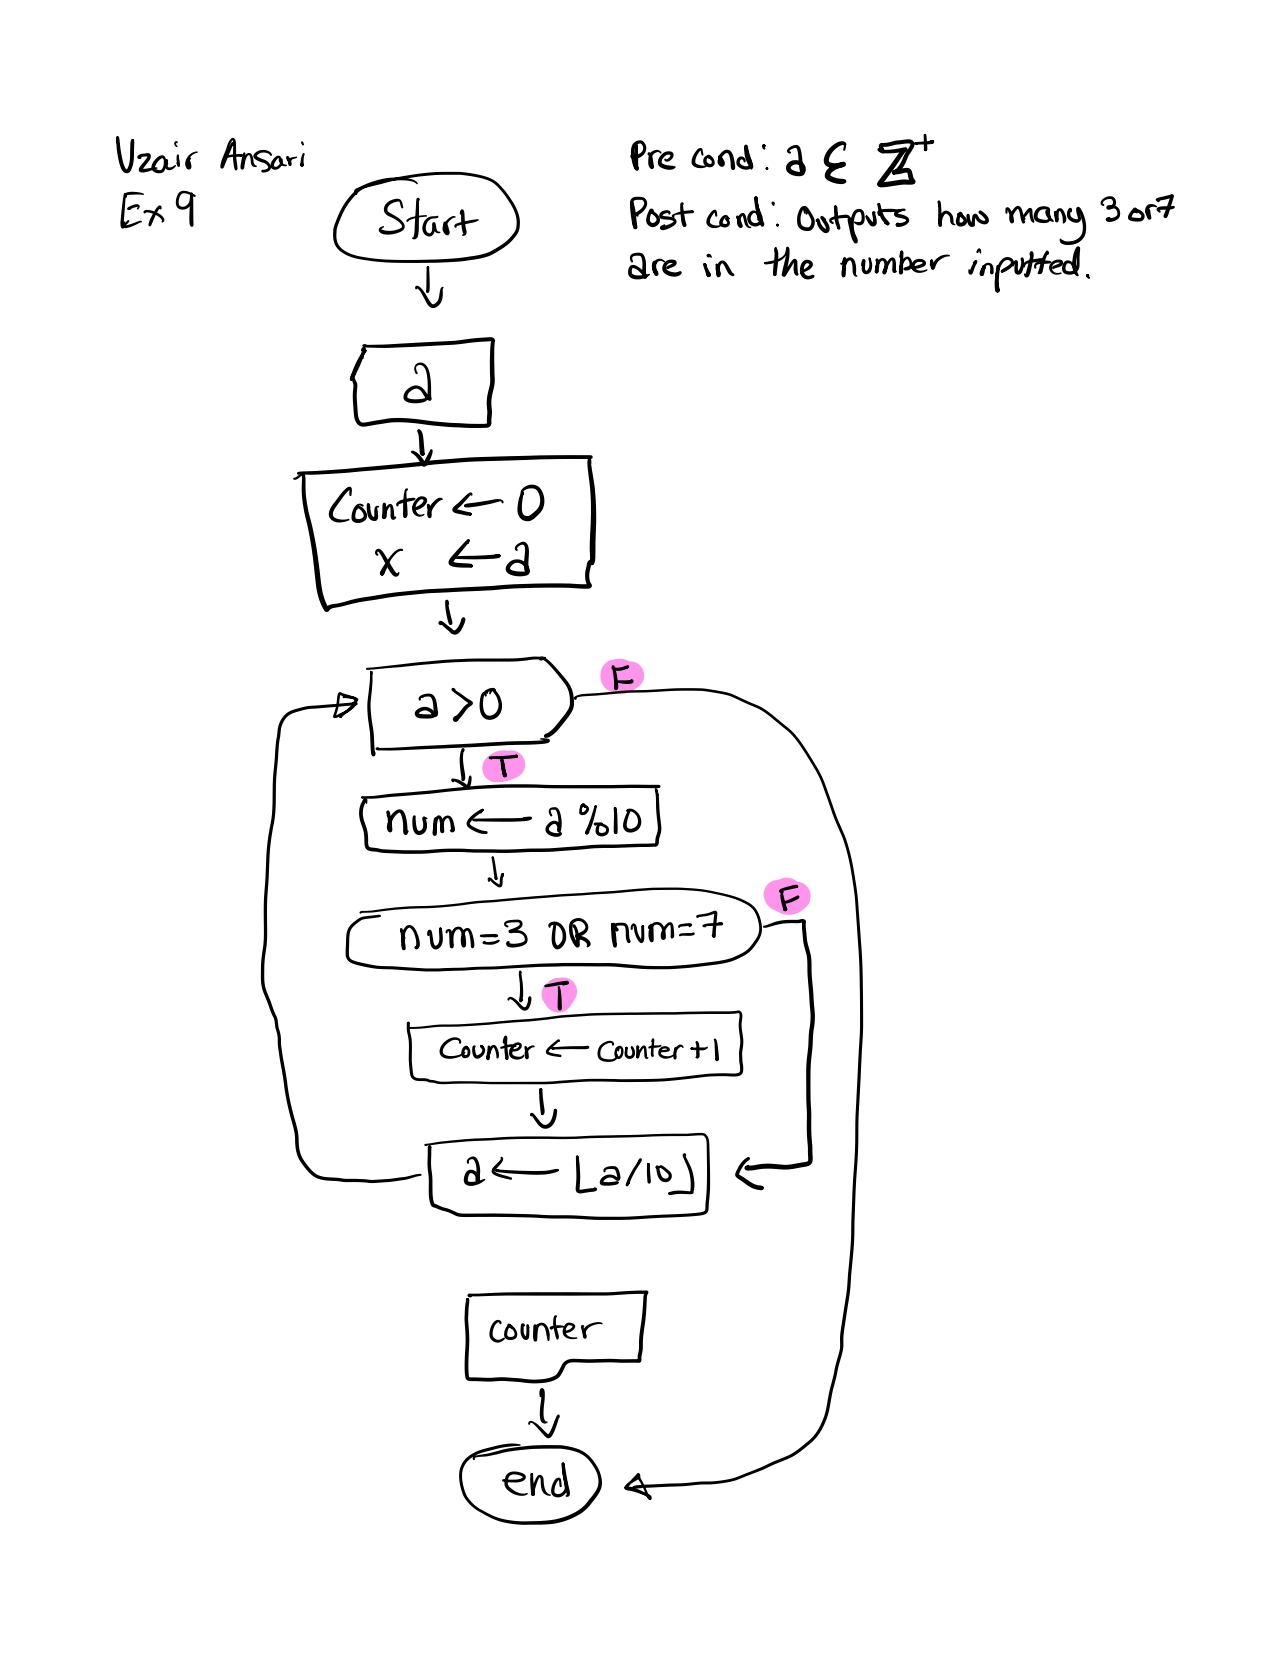 Uzair Ansari
Ex 9
Pre cond: a ε ℤ⁺
Post cond: Outputs how many 3 or 7
are in the number inputted.
Start
a
Counter ← 0
x ← a
a > 0
F
T
num ← a % 10
num = 3 OR num = 7
F
T
Counter ← Counter + 1
a ← ⌊a/10⌋
counter
end